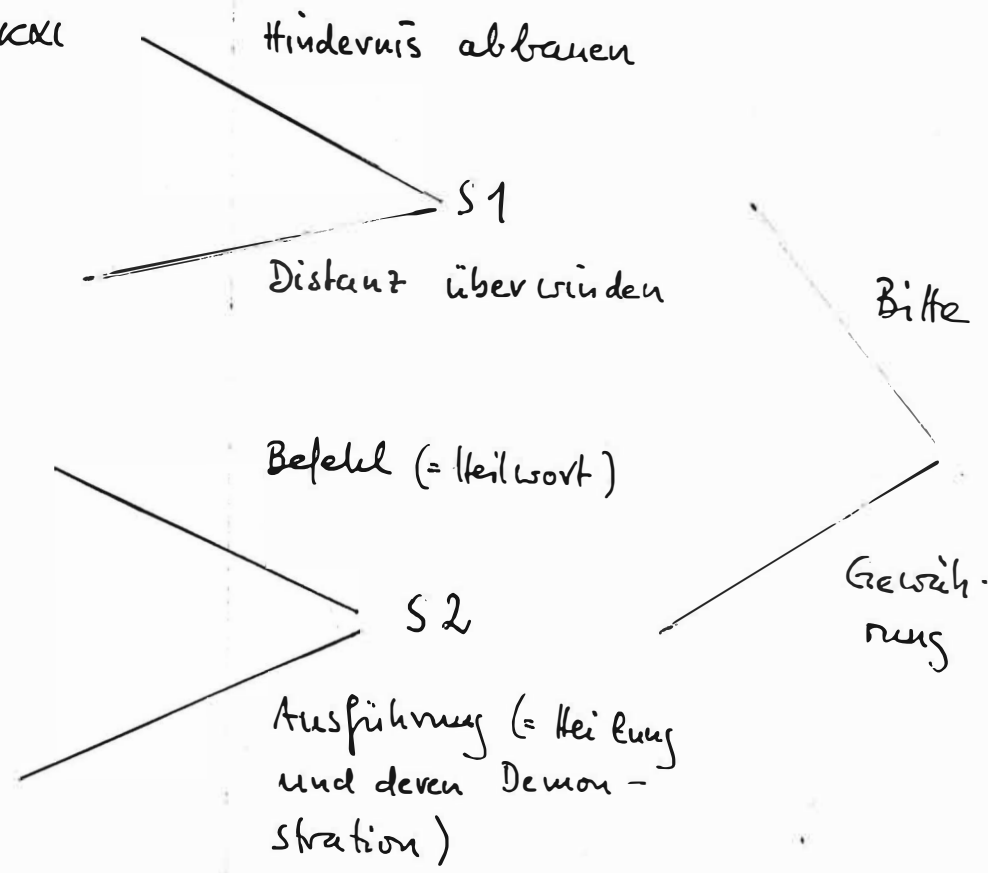 Hindernis abbauen
S1
Distanz überwinden
Bitte
Befehl (= Heilwort)
S2
Gewäh-
rung
Ausführung (= Heilung
und deren Demon-
stration)